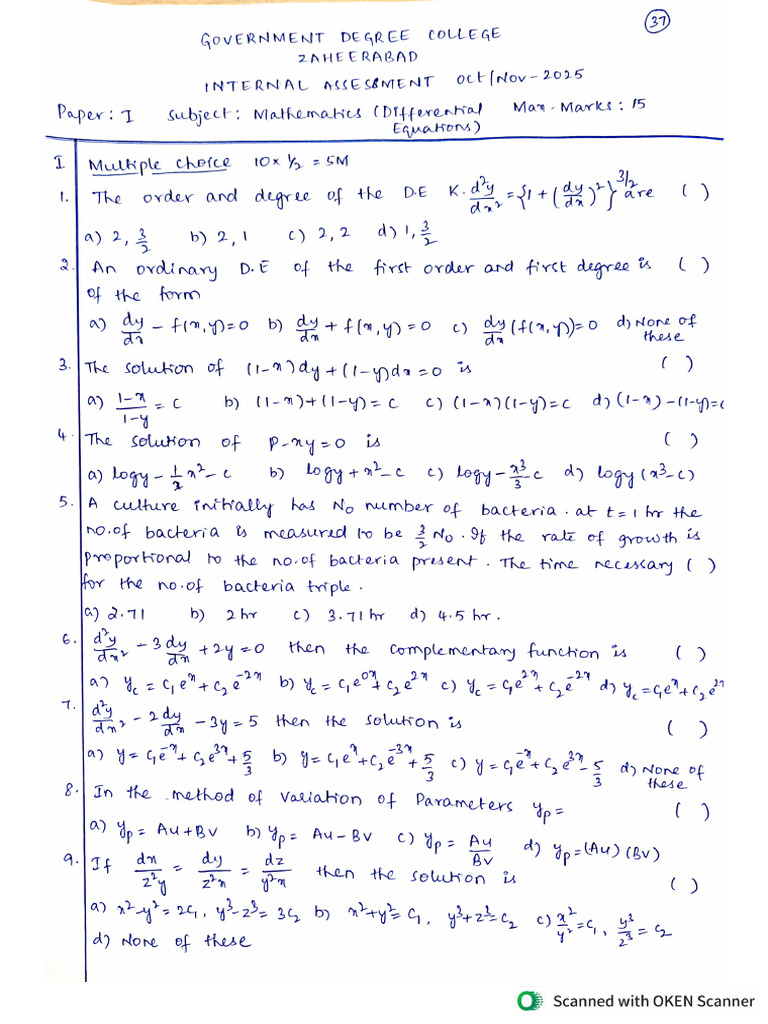 37
GOVERNMENT DEGREE COLLEGE
ZAHEERABAD
INTERNAL ASSESSMENT Oct/Nov-2025
Paper: I Subject: Mathematics (Differential Equations) Max. Marks: 15
I Multiple choice 10 x 1/2 = 5M
1. The order and degree of the D.E K. d²y/dx² = {1 + (dy/dx)²}^3/2 are ( )
a) 2, 3/2 b) 2, 1 c) 2, 2 d) 1, 3/2
2. An ordinary D.E of the first order and first degree is ( )
of the form
a) dy/dx - f(x,y)=0 b) dy/dx + f(x,y) = 0 c) dy/dx (f(x,y))=0 d) None of these
3. The solution of (1-x)dy+(1-y)dx=0 is ( )
a) 1-x/1-y = c b) (1-x)+(1-y)=c c) (1-x)(1-y)=c d) (1-x)-(1-y)=c
4. The solution of P-xy=0 is ( )
a) logy - 1/2 x² - c b) logy + x² - c c) logy - x³/3 - c d) logy (x³-c)
5. A culture initially has N₀ number of bacteria. at t=1 hr the
no.of bacteria is measured to be 3/2 N₀. If the rate of growth is
proportional to the no.of bacteria present. The time necessary ( )
for the no.of bacteria triple.
a) 2.71 b) 2hr c) 3.71 hr d) 4.5 hr.
6. d²y/dx² - 3dy/dx + 2y=0 then the complementary function is ( )
a) y_c = c₁e^x + c₂e^-2x b) y_c = c₁e^0x + c₂e^2x c) y_c = c₁e^2x + c₂e^-2x d) y_c = c₁e^x + c₂e^2x
7. d²y/dx² - 2dy/dx - 3y = 5 then the solution is ( )
a) y = c₁e^-x + c₂e^3x + 5/3 b) y = c₁e^x + c₂e^-3x + 5/3 c) y = c₁e^-x + c₂e^3x - 5/3 d) None of these
8. In the method of Variation of Parameters y_p = ( )
a) y_p = Au+Bv b) y_p = Au-Bv c) y_p = Au/Bv d) y_p = (Au)(Bv)
9. If dx/z²y = dy/z²x = dz/y²x then the solution is ( )
a) x²-y² = 2c₁, y³-z³ = 3c₂ b) x²+y² = c₁, y³+z³ = c₂ c) x²/y² = c₁, y³/z³ = c₂
d) None of these
Scanned with OKEN Scanner